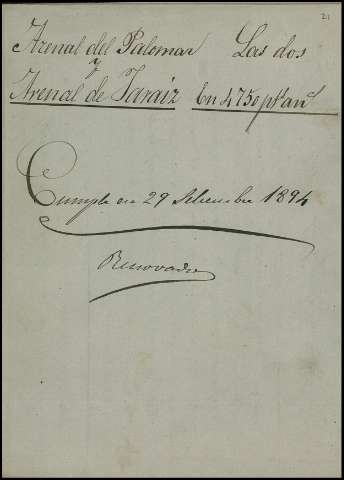 21
Arenal del Palomar Las dos
y
Arenal de Taraiz En 4750 ptas an.l
Cumple en 29 Setiembre 1894
Renovado